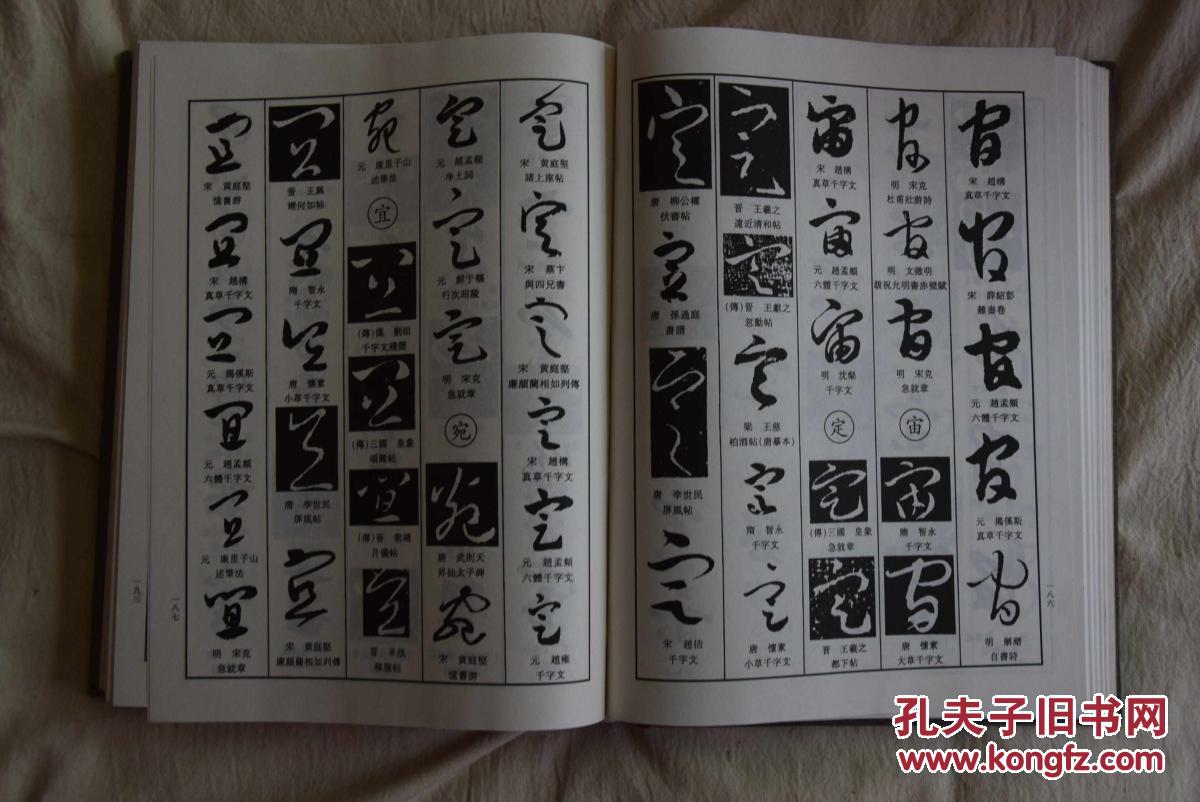 宋　趙構
真草千字文
宋　薛紹彭
雜書卷
元　趙孟頫
六體千字文
元　揭傒斯
真草千字文
明　解縉
自書詩
明　宋克
杜甫壯游詩
明　文徵明
跋祝允明書赤壁賦
明　宋克
急就章
宙
隋　智永
千字文
唐　懷素
大草千字文
宋　趙構
真草千字文
元　趙孟頫
六體千字文
明　沈粲
千字文
定
(傳)三國　皇象
急就章
晉　王羲之
都下帖
晉　王羲之
遠近清和帖
(傳)晉　王獻之
忽動帖
梁　王慈
柏酒帖(唐摹本)
隋　智永
千字文
唐　懷素
小草千字文
唐　柳公權
伏審帖
唐　孫過庭
書譜
唐　李世民
屏風帖
宋　趙佶
千字文
一八六
宋　黃庭堅
諸上座帖
宋　蔡卞
與四兄書
宋　黃庭堅
廉頗藺相如列傳
宋　趙構
真草千字文
元　趙孟頫
六體千字文
元　趙雍
千字文
元　趙孟頫
净土詞
元　鮮于樞
行次昭陵
明　宋克
急就章
宛
唐　武則天
昇仙太子碑
宋　黃庭堅
憶舊游
元　康里子山
述筆法
宜
(傳)漢　劉炟
千字文殘閣
(傳)三國　皇象
頑闇帖
(傳)晉　索靖
月儀帖
晉　羊欣
移屋帖
晉　王廙
嫂何如帖
隋　智永
千字文
唐　懷素
小草千字文
唐　李世民
屏風帖
宋　黃庭堅
廉頗藺相如列傳
宋　黃庭堅
憶舊游
宋　趙構
真草千字文
元　揭傒斯
真草千字文
元　趙孟頫
六體千字文
元　康里子山
述筆法
明　宋克
急就章
一八七
一九三
孔夫子旧书网
www.kongfz.com